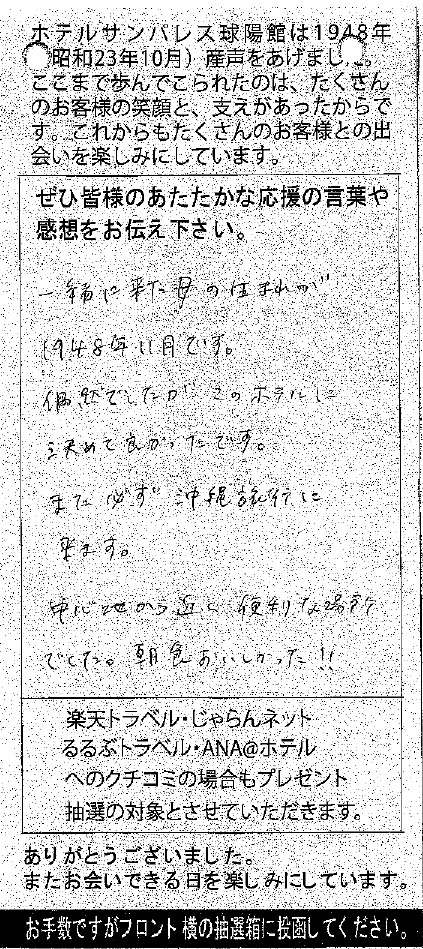 ホテルサンパレス球陽館は1948年
昭和23年10月）産声をあげました。
ここまで歩んでこられたのは、たくさん
のお客様の笑顔と、支えがあったからで
す。これからもたくさんのお客様との出
会いを楽しみにしています。
ぜひ皆様のあたたかな応援の言葉や
感想をお伝え下さい。
一緒に来た母の生まれが
1948年11月です。
偶然でしたがこのホテルに
決めて良かったです。
また必ず沖縄旅行に
来ます。
中心地から近く便利な場所
でした。朝食おいしかった!!
楽天トラベル・じゃらんネット
るるぶトラベル・ANA@ホテル
へのクチコミの場合もプレゼント
抽選の対象とさせていただきます。
ありがとうございました。
またお会いできる日を楽しみにしています。
お手数ですがフロント横の抽選箱に投函してください。